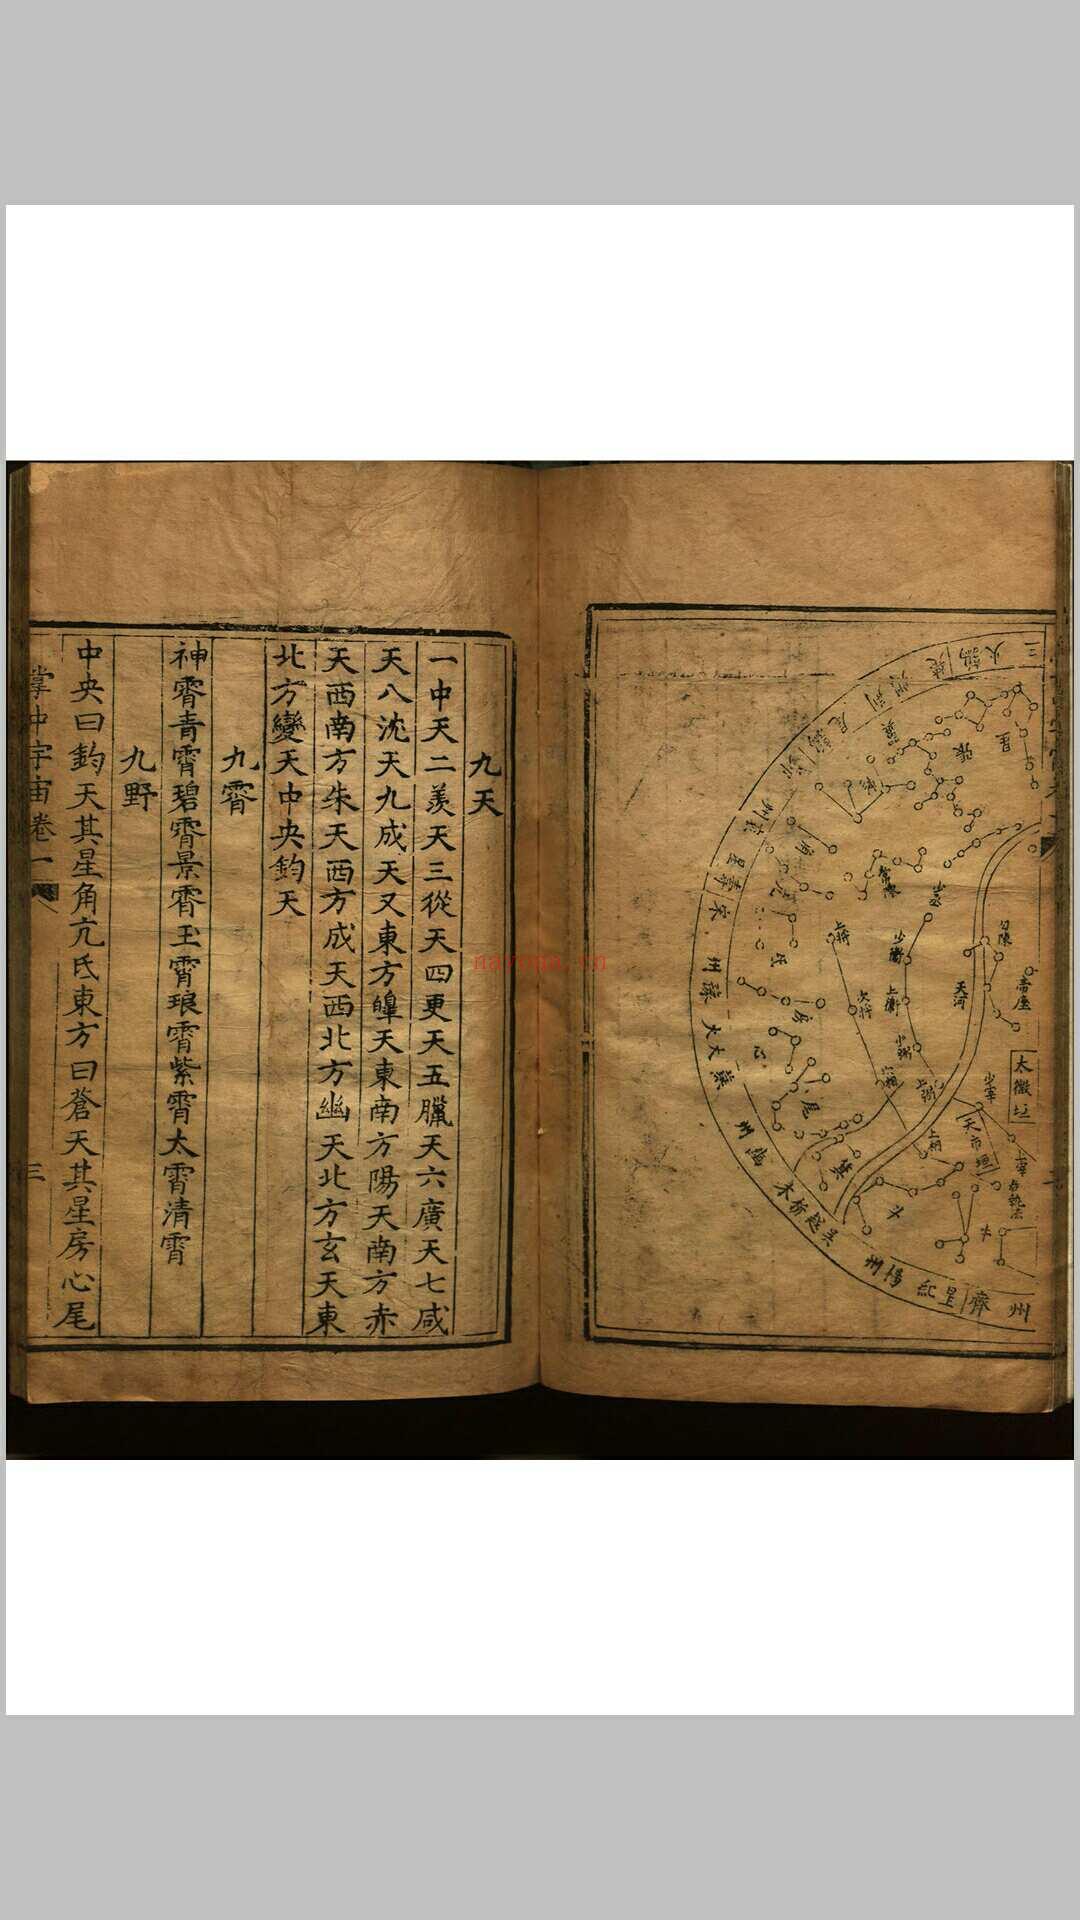 太微垣
天市垣
天河
帝座
上將
次將
少衛
上衛
少弼
上弼
上相
少宰
上宰
角
亢
氐
房
心
尾
箕
斗
張
星
三
火
宋
大火
析木
吳越
揚州
星紀
齊
州
九天
一中天二羨天三從天四更天五臘天六廣天七咸
天八沈天九成天又東方皞天東南方陽天南方赤
天西南方朱天西方成天西北方幽天北方玄天東
北方變天中央鈞天
九霄
神霄青霄碧霄景霄玉霄琅霄紫霄太霄清霄
九野
中央曰鈞天其星角亢氐東方曰蒼天其星房心尾
掌中宇宙卷一
三
nayona.cn